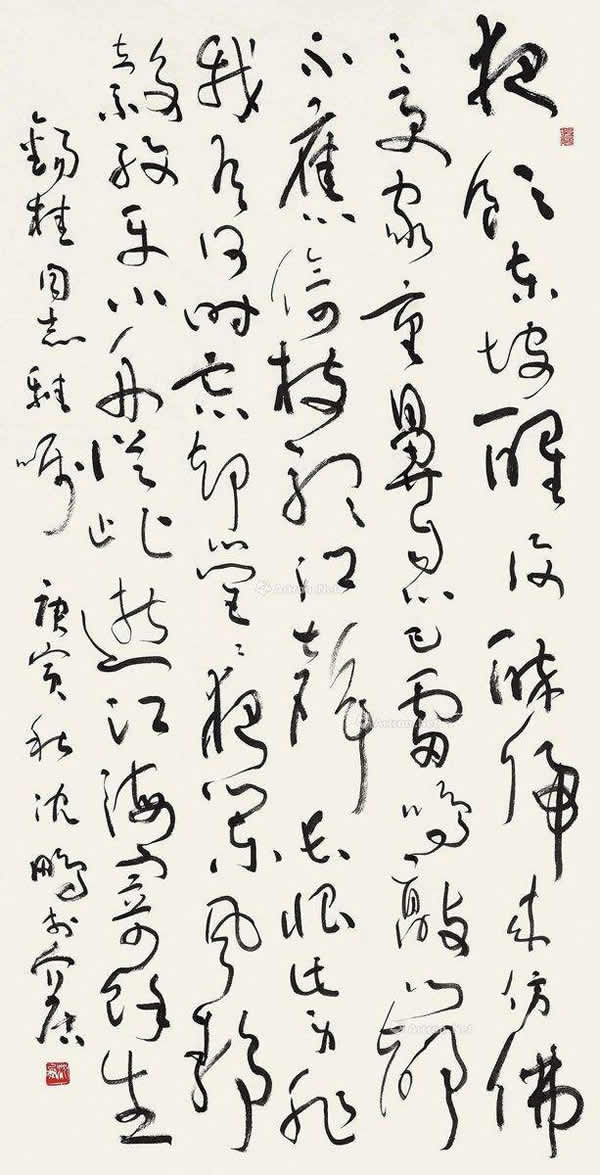 夜饮东坡醒复醉归来仿佛
三更家童鼻息已雷鸣敲门都
不应倚杖听江声长恨此身非
我有何时忘却营营夜阑风静
縠纹平小舟从此逝江海寄余生
锡桂同志雅嘱 庚寅秋沈鹏于介居